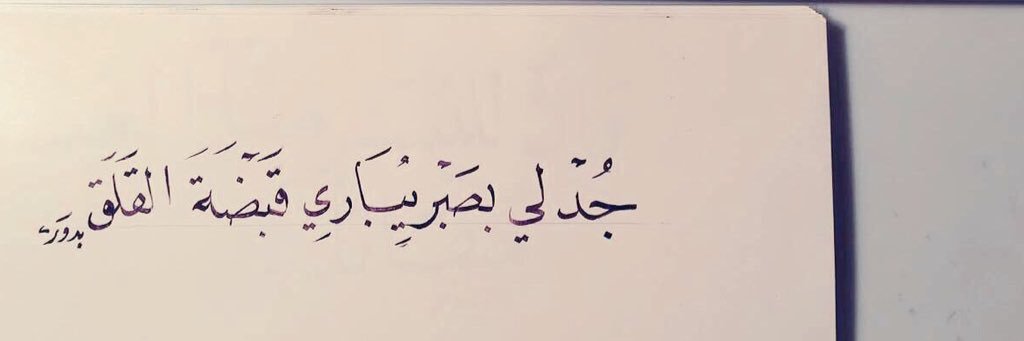 جُدْ لي بصَبْرٍ يُبَاري قَبْضَةَ القَلَق
بدور